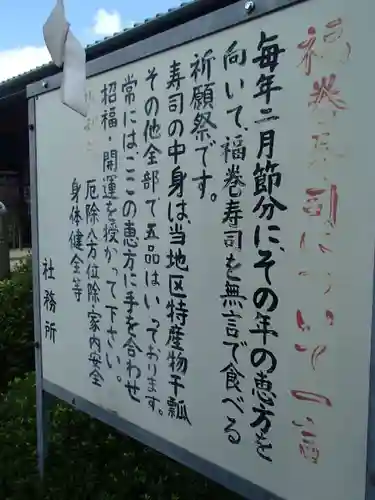 福巻寿司について一言
毎年二月節分に、その年の恵方を
向いて、福巻寿司を無言で食べる
祈願祭です。
寿司の中身は、当地区特産物干瓢
その他全部で五品はいっております。
常には、ここの恵方に手を合わせ
招福・開運を授かって下さい。
厄除八方位除家内安全
身体健全等
社務所